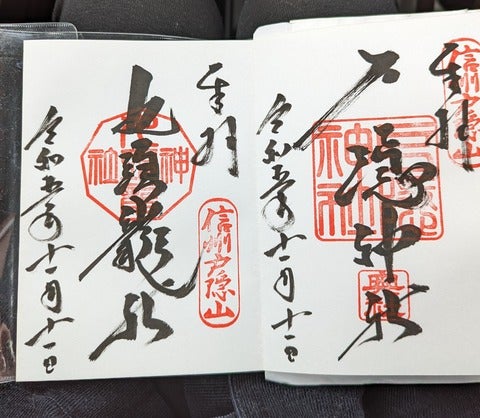 奉拝
信州戸隠山
戸隠神社
戸隠神社
奥社
令和五年十一月十一日
奉拝
信州戸隠山
九頭龍社
令和五年十一月十一日